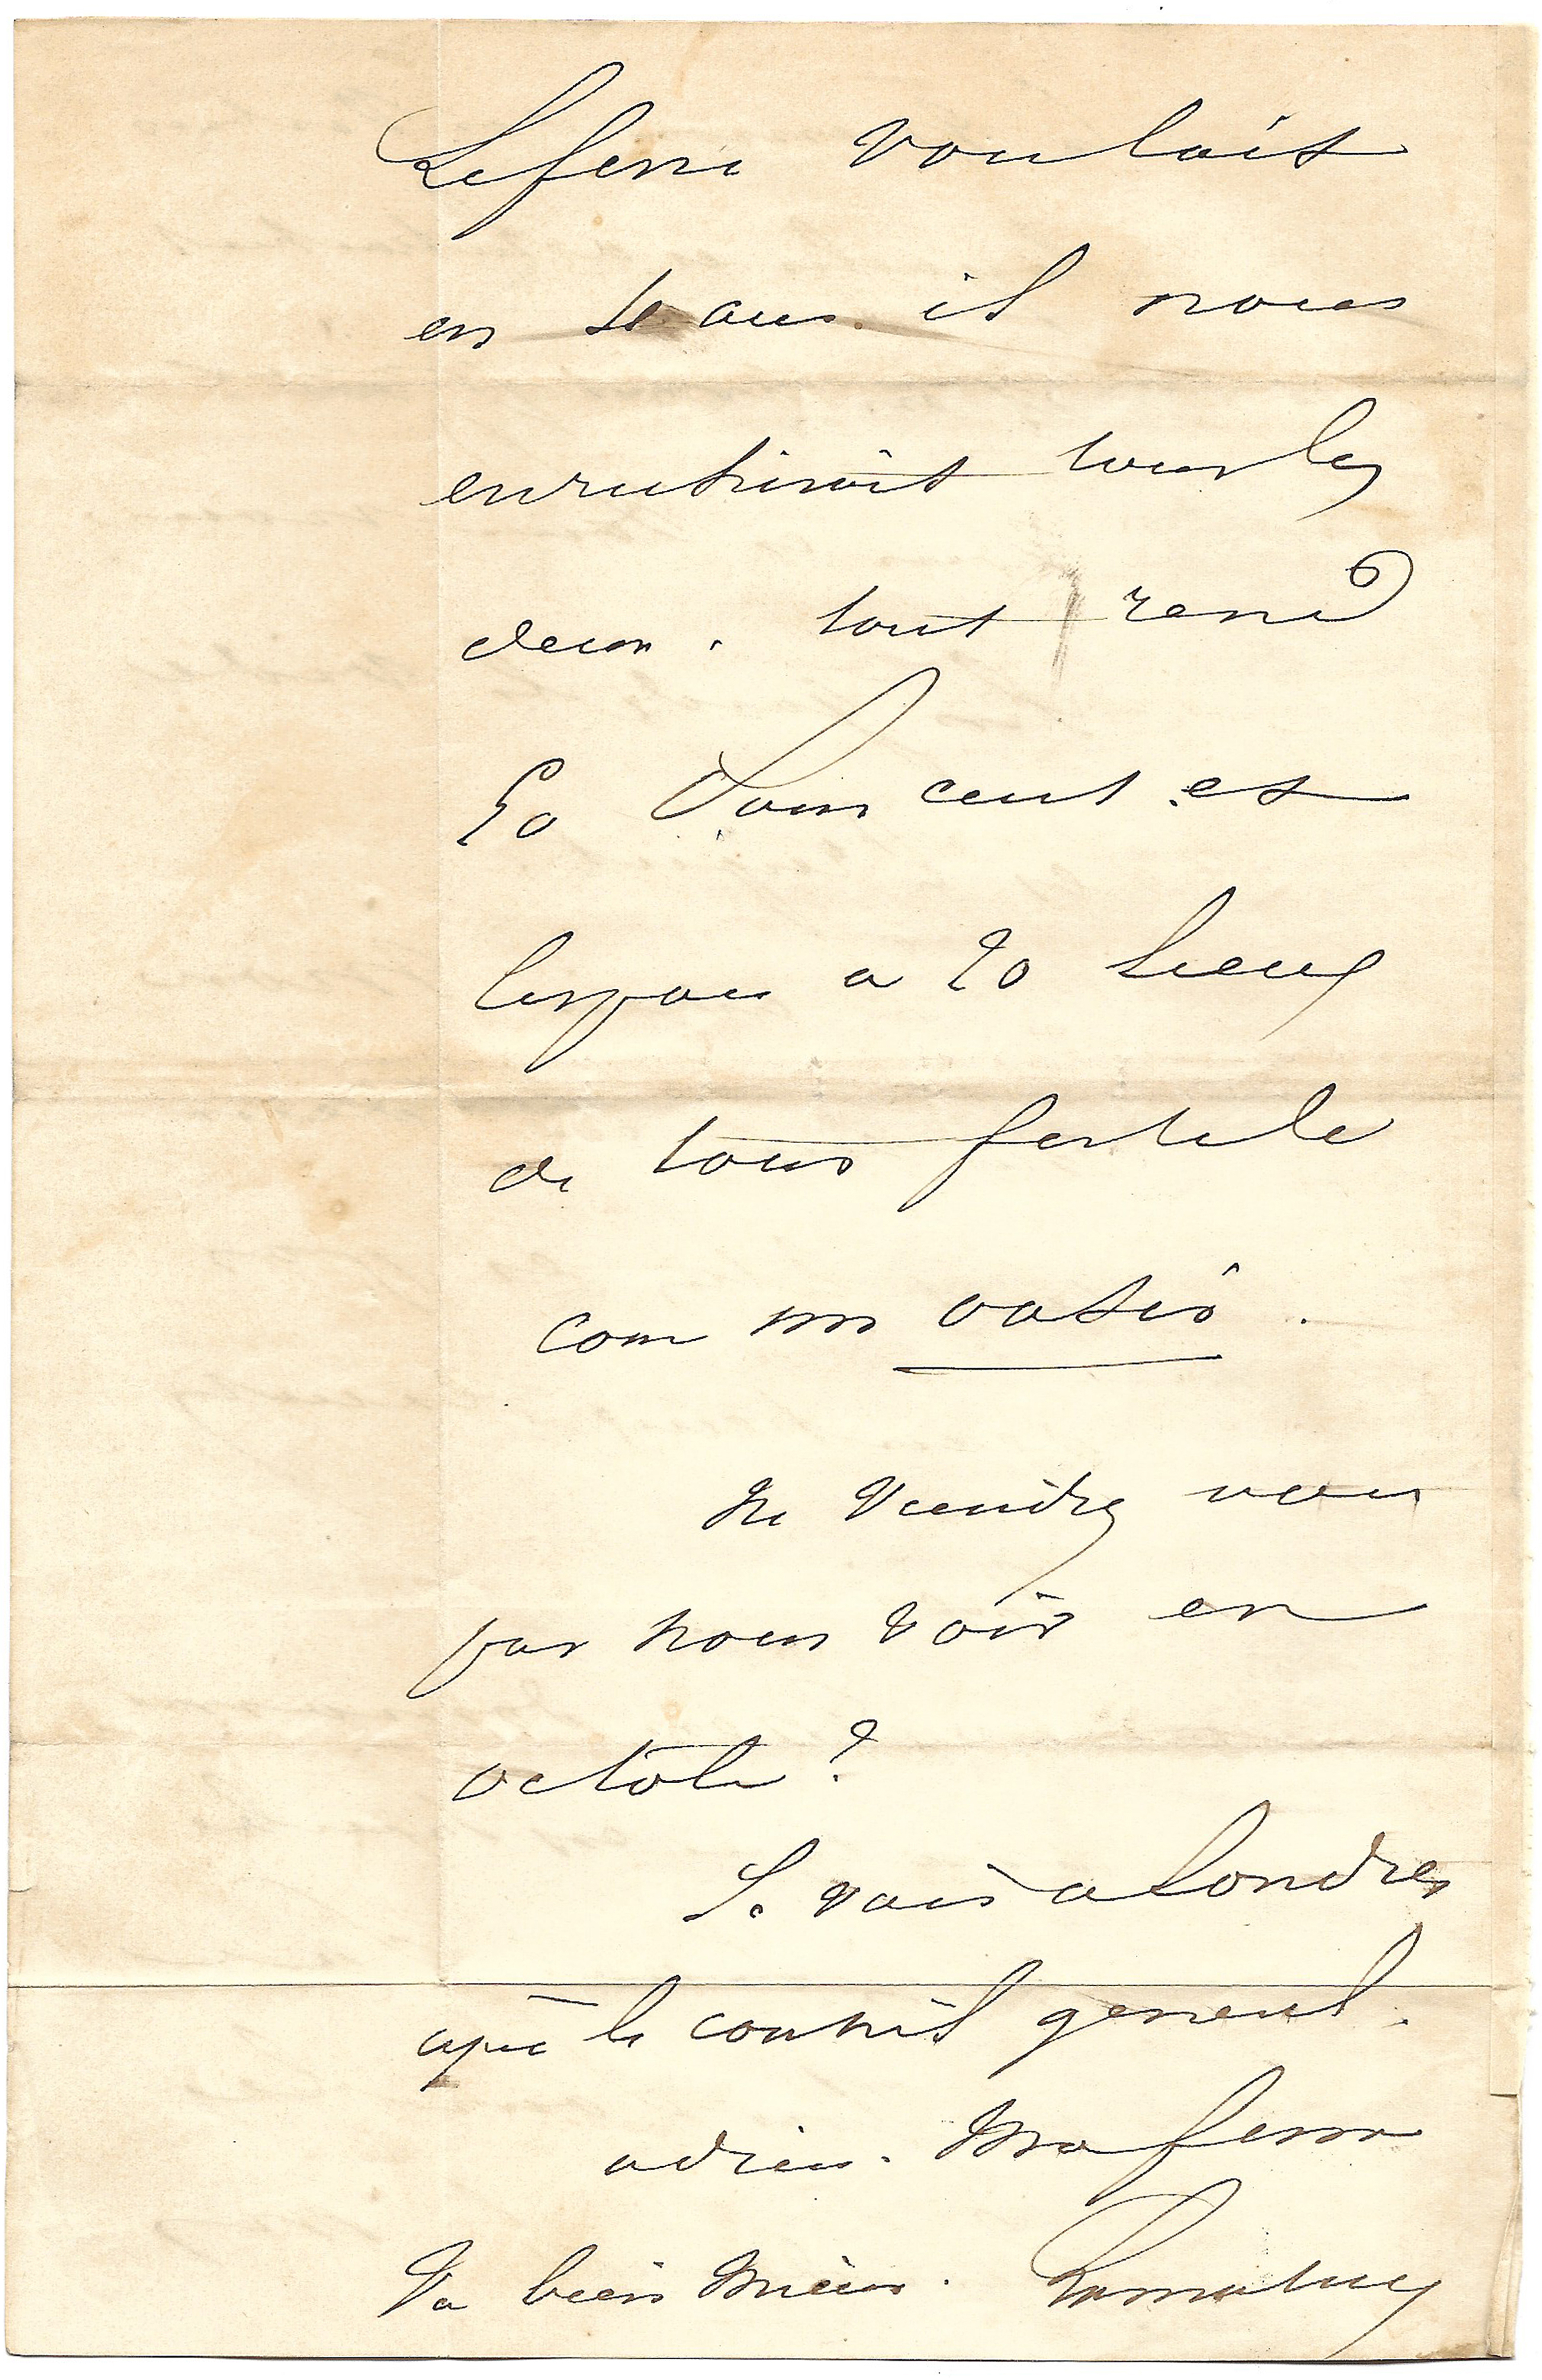 Lefevre voulait
en 10 ans il nous
enrichirait tous les
deux. tout rend
50 pour cent et
les pour a 20 lieues
de tour fertile
com un oasis.
Ne viendrez vous
pas nous voir en
octobre?
Je vais a Londres
après le conseil general.
adieu. Ma femme
va bien mieux. Lamartine